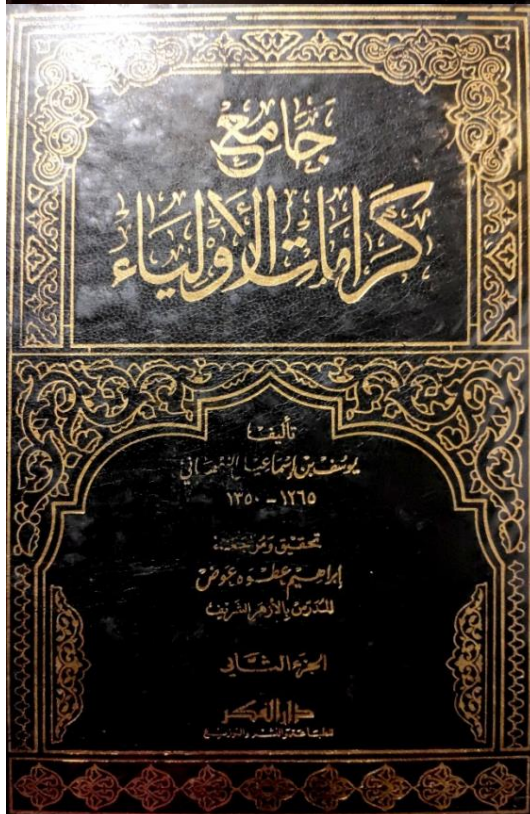 جامع
كرامات الأولياء
تأليف
يوسف بن إسماعيل النبهاني
١٢٦٥ - ١٣٥٠
تحقيق ومراجعة:
إبراهيم عطوه عوض
المدرس بالأزهر الشريف
الجزء الثاني
دار الفكر
للطباعة والنشر والتوزيع